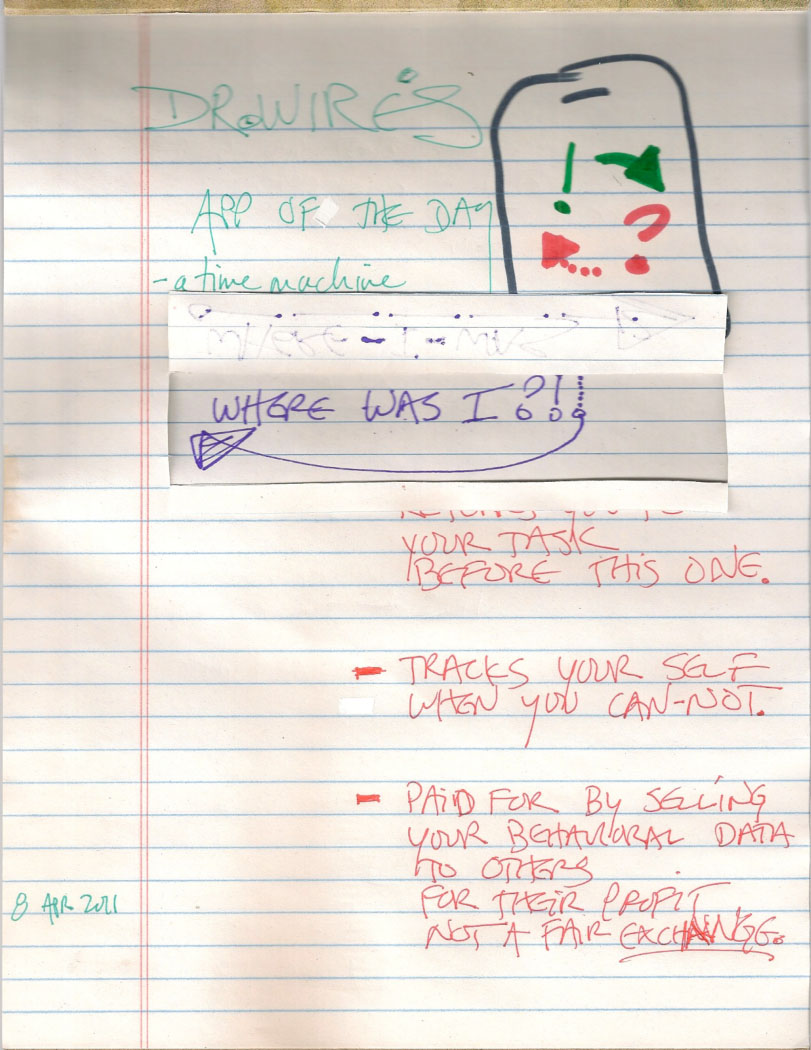 DR. WIRE'S
APP OF THE DAY
- a time machine
WHERE WAS I ?!
YOUR TASK
BEFORE THIS ONE.
- TRACKS YOUR SELF
WHEN YOU CAN-NOT.
- PAID FOR BY SELLING
YOUR BEHAVIORAL DATA
TO OTHERS
FOR THEIR PROFIT
NOT A FAIR EXCHANGE.
8 APR 2021
! ?